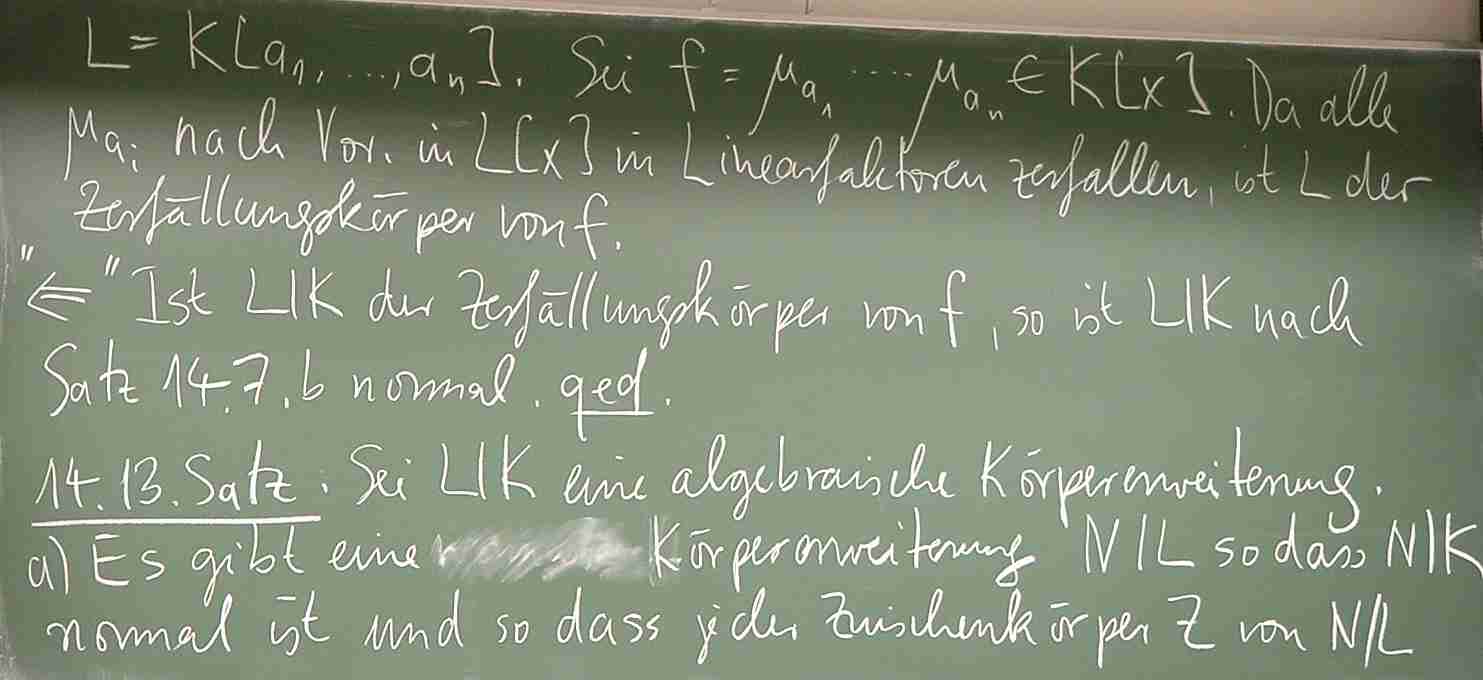 L = K[a₁, ..., aₙ]. Sei f = μ_a₁ ···· μ_aₙ ∈ K[x]. Da alle
μ_aᵢ nach Vor. in L[x] in Linearfaktoren zerfallen, ist L der
Zerfällungskörper von f.
"⇐" Ist L|K der Zerfällungskörper von f, so ist L|K nach
Satz 14.7.b normal. qed.
14.13. Satz: Sei L|K eine algebraische Körpererweiterung.
a) Es gibt eine Körpererweiterung N|L so dass N|K
normal ist und so dass jeder Zwischenkörper Z von N/L